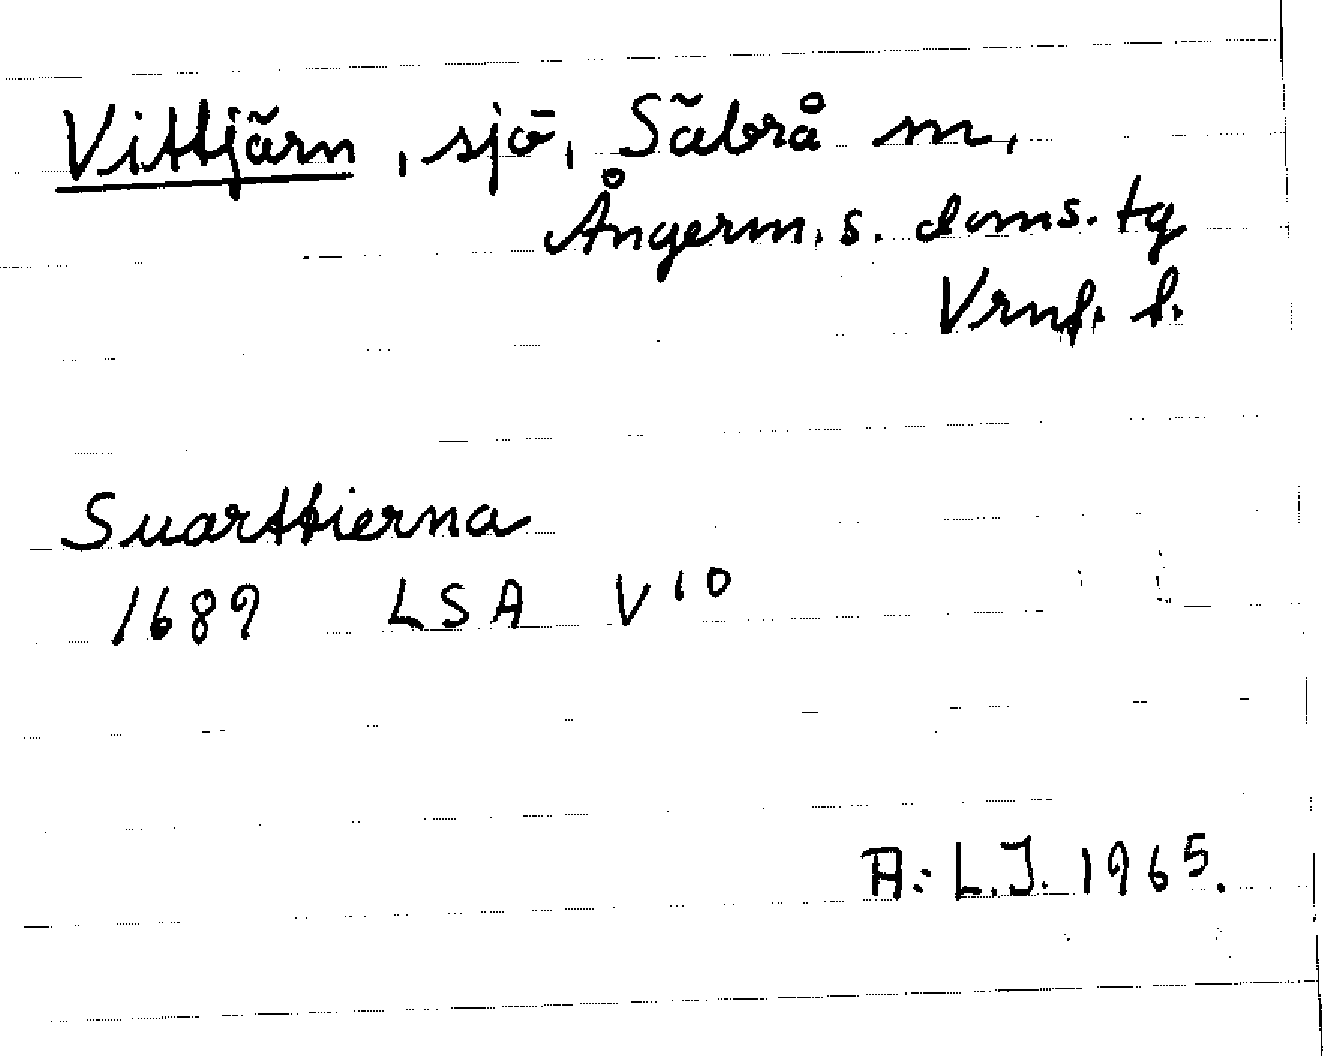 Vittjärn, sjö, Säbrå m,
Ångerm. s. doms. tg
Vrnf. l.
Suarttierna
1689 LSA V10
A:L.J. 1965.